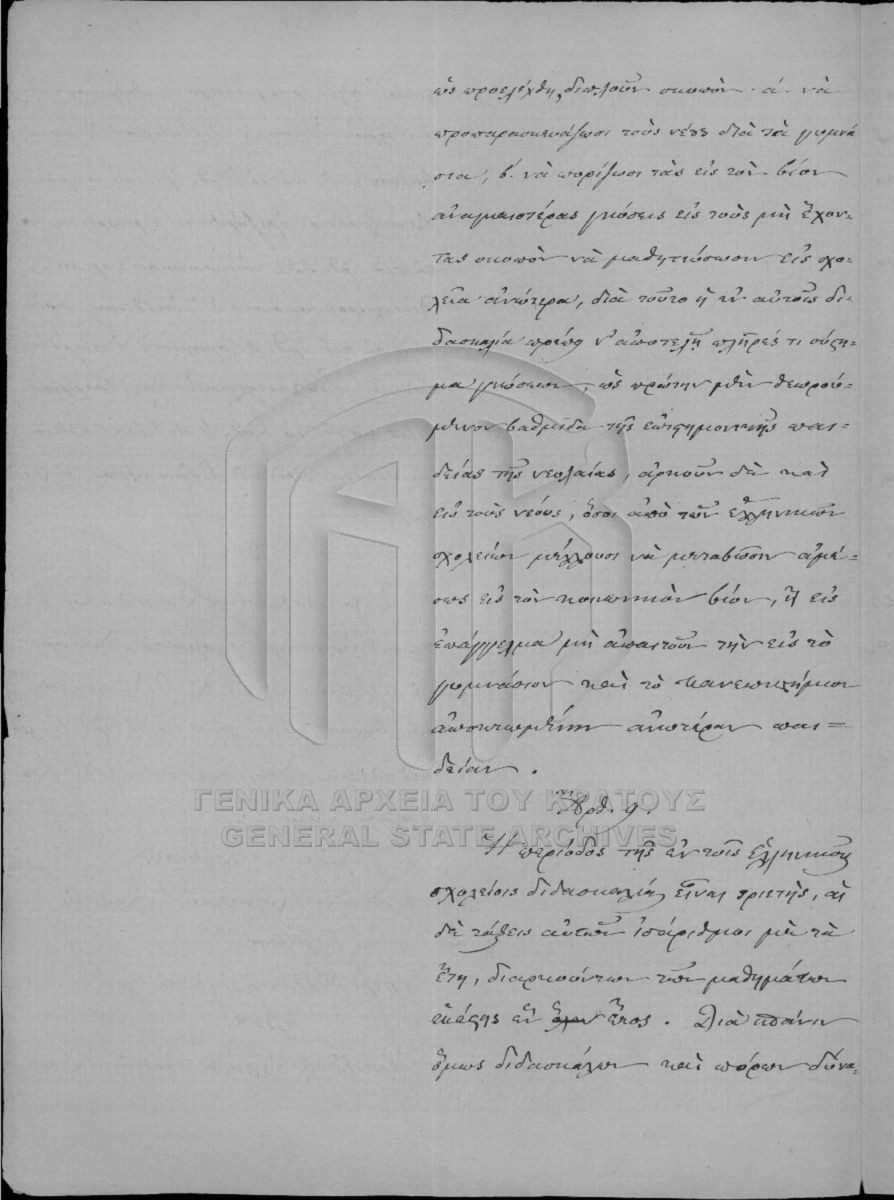 ὡς προελέχθη, διπλοῦν σκοπὸν· α΄. νὰ
προπαρασκευάζωσι τοὺς νέους διὰ τὰ γυμνά
σια, β΄. νὰ πορίζωσι τὰς εἰς τὸν βίον
ἀναγκαιοτέρας γνώσεις εἰς τοὺς μὴ ἔχον-
τας σκοπὸν νὰ μαθητεύσωσιν εἰς σχο-
λεῖα ἀνώτερα, διὰ τοῦτο ἡ ἐν αὐτοῖς δι-
δασκαλία πρέπει ν' ἀποτελῇ πλῆρές τι σύστη-
μα γνώσεων, ὡς πρώτην μὲν θεωρού-
μενον βαθμῖδα τῆς ἐπιστημονικῆς παι-
δείας τῆς νεολαίας, ἀρκοῦν δὲ καὶ
εἰς τοὺς νέους, ὅσοι ἀπὸ τῶν ἑλληνικῶν
σχολείων μέλλουσι νὰ μεταβῶσιν ἀμέ-
σως εἰς τὸν κοινωνικὸν βίον, ἢ εἰς
ἐπάγγελμα μὴ ἀπαιτοῦν τὴν εἰς τὸ
γυμνάσιον καὶ τὸ πανεπιστήμιον
ἀποκτωμένην ἀνωτέραν παι=
δείαν.
Ἄρθ. 9.
Ἡ περίοδος τῆς ἐν τοῖς ἑλληνικοῖς
σχολείοις διδασκαλίας εἶναι τριετὴς, αἱ
δὲ τάξεις αὐτῶν ἰσάριθμοι μὲ τὰ
ἔτη, διαρκούντων τῶν μαθημάτων
ἑκάστης ἓν ὅλον ἔτος. Διὰ σπάνιν
ὅμως διδασκάλων καὶ πόρων δύνα-
ΓΕΝΙΚΑ ΑΡΧΕΙΑ ΤΟΥ ΚΡΑΤΟΥΣ
GENERAL STATE ARCHIVES